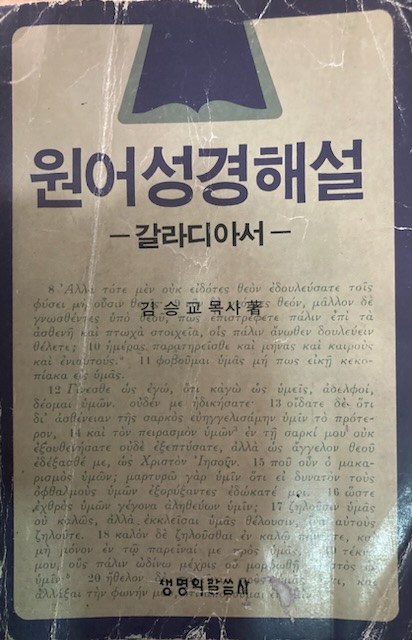 원어성경해설
-갈라디아서-
8 Ἀλλὰ τότε μὲν οὐκ εἰδότες θεὸν ἐδουλεύσατε τοῖς
φύσει μὴ οὖσιν θεοῖς· θεόν, μᾶλλον δὲ
김승교목사著
γνωσθέντες ὑπὸ θεοῦ, πῶς ἐπιστρέφετε πάλιν ἐπὶ τὰ
ἀσθενῆ καὶ πτωχὰ στοιχεῖα, οἷς πάλιν ἄνωθεν δουλεύειν
θέλετε; 10 ἡμέρας παρατηρεῖσθε καὶ μῆνας καὶ καιροὺς
καὶ ἐνιαυτούς. 11 φοβοῦμαι ὑμᾶς μή πως εἰκῇ κεκο-
πίακα εἰς ὑμᾶς.
12 Γίνεσθε ὡς ἐγώ, ὅτι κἀγὼ ὡς ὑμεῖς, ἀδελφοί,
δέομαι ὑμῶν. οὐδέν με ἠδικήσατε· 13 οἴδατε δὲ ὅτι
δι' ἀσθένειαν τῆς σαρκὸς εὐηγγελισάμην ὑμῖν τὸ πρότε-
ρον, 14 καὶ τὸν πειρασμὸν ὑμῶν ἐν τῇ σαρκί μου οὐκ
ἐξουθενήσατε οὐδὲ ἐξεπτύσατε, ἀλλὰ ὡς ἄγγελον θεοῦ
ἐδέξασθέ με, ὡς Χριστὸν Ἰησοῦν. 15 ποῦ οὖν ὁ μακα-
ρισμὸς ὑμῶν; μαρτυρῶ γὰρ ὑμῖν ὅτι εἰ δυνατὸν τοὺς
ὀφθαλμοὺς ὑμῶν ἐξορύξαντες ἐδώκατέ μοι. 16 ὥστε
ἐχθρὸς ὑμῶν γέγονα ἀληθεύων ὑμῖν; 17 ζηλοῦσιν ὑμᾶς
οὐ καλῶς, ἀλλὰ ἐκκλεῖσαι ὑμᾶς θέλουσιν, αὐτοὺς
ζηλοῦτε. 18 καλὸν δὲ ζηλοῦσθαι ἐν καλῷ καὶ
μὴ μόνον ἐν τῷ παρεῖναί με πρὸς ὑμᾶς, 19 τέκν
μου, οὓς πάλιν ὠδίνω μέχρις οὗ μορφωθῇ
ὑμῖν· 20 ἤθελον ὑμᾶς καὶ
ἀλλάξαι τὴν φωνήν μου,
생명의말씀사